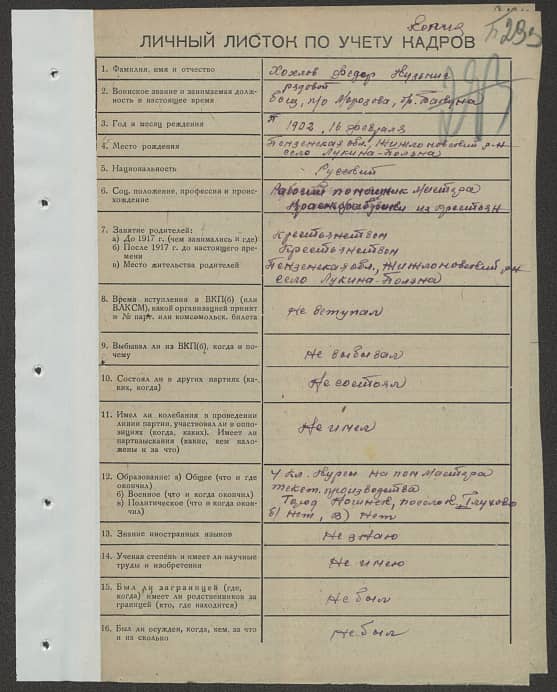 Копия
ЛИЧНЫЙ ЛИСТОК ПО УЧЕТУ КАДРОВ
1. Фамилия, имя и отчество
Хохлов Федор Кузьмич
2. Воинское звание и занимаемая должность в настоящее время
рядовой
боец, п/о Морозова, гр.
3. Год и месяц рождения
1902, 16 февраля
4. Место рождения
Пензенская обл., р-н
село Лукина-Поляна
5. Национальность
Русский
6. Соц. положение, профессия и происхождение
Рабочий помощник мастера
из крестьян
7. Занятие родителей:
а) До 1917 г. (чем занимались и где)
б) После 1917 г. до настоящего времени
в) Место жительства родителей
Крестьянством
Крестьянством
Пензенская обл., р-н
село Лукина-Поляна
8. Время вступления в ВКП(б) (или
ВЛКСМ), какой организацией принят
и № парт. или комсомольск. билета
Не вступал
9. Выбывал ли из ВКП(б), когда и почему
Не выбывал
10. Состоял ли в других партиях (каких, когда)
Не состоял
11. Имел ли колебания в проведении
линии партии, участвовал ли в оппозициях
(когда, каких). Имеет ли
партвзыскания (какие, кем наложены
и за что)
Не имел
12. Образование: а) Общее (что и где
окончил)
б) Военное (что и когда окончил)
в) Политическое (что и когда окончил)
4 кл. Курсы на пом мастера
текст. производства
Город Ногинск, поселок Глухово
б) Нет, в) Нет
13. Знание иностранных языков
Не знаю
14. Ученая степень и имеет ли научные
труды и изобретения
Не имею
15. Был ли заграницей (где,
когда) имеет ли родственников за
границей (кто, где находится)
Не был
16. Был ли осужден, когда, кем, за что
и на сколько
Не был